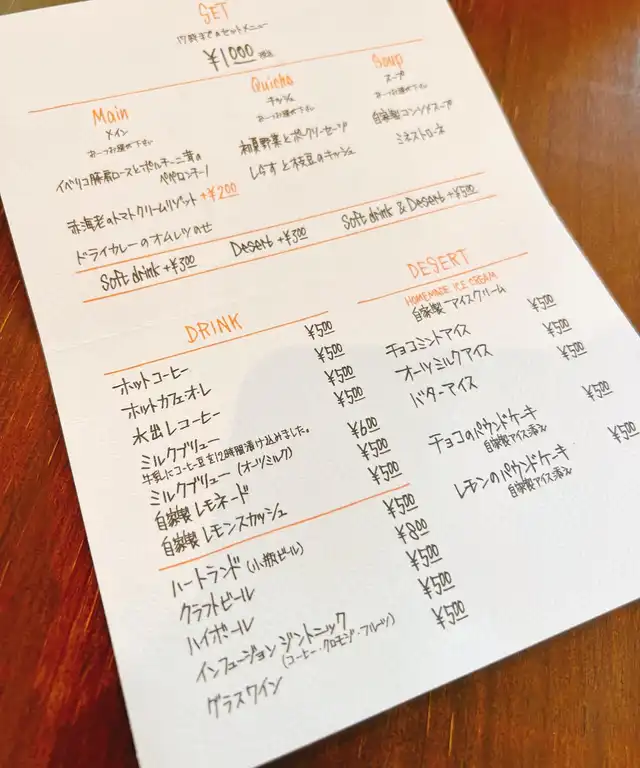 SET
17時までのセットメニュー
¥1000 税込
Main
メイン
お一つお選び下さい
イベリコ豚肩ロースとポルチーニ茸の
ペペロンチーノ
赤海老のトマトクリームリゾット +¥200
ドライカレーのオムレツのせ
Quiche
キッシュ
お一つお選び下さい
初夏野菜とポークソーセージ
しらすと枝豆のキッシュ
Soup
スープ
お一つお選び下さい
自家製コンソメスープ
ミネストローネ
Soft drink +¥300 Desert +¥300 Soft drink & Desert +¥500
DRINK
ホットコーヒー ¥500
ホットカフェ・オ・レ ¥500
水出しコーヒー ¥500
ミルクブリュー ¥500
牛乳にコーヒー豆を12時間漬け込みました。
ミルクブリュー (オーツミルク) ¥600
自家製レモネード ¥500
自家製レモンスカッシュ ¥500
ハートランド (小瓶ビール) ¥500
クラフトビール ¥800
ハイボール ¥500
インフュージョンジントニック ¥500
(コーヒー・クロモジ・フルーツ)
グラスワイン ¥500
DESERT
HOMEMADE ICE CREAM
自家製アイスクリーム
チョコミントアイス ¥500
オーツミルクアイス ¥500
バターアイス ¥500
チョコのパウンドケーキ ¥500
自家製アイス添え
レモンのパウンドケーキ ¥500
自家製アイス添え